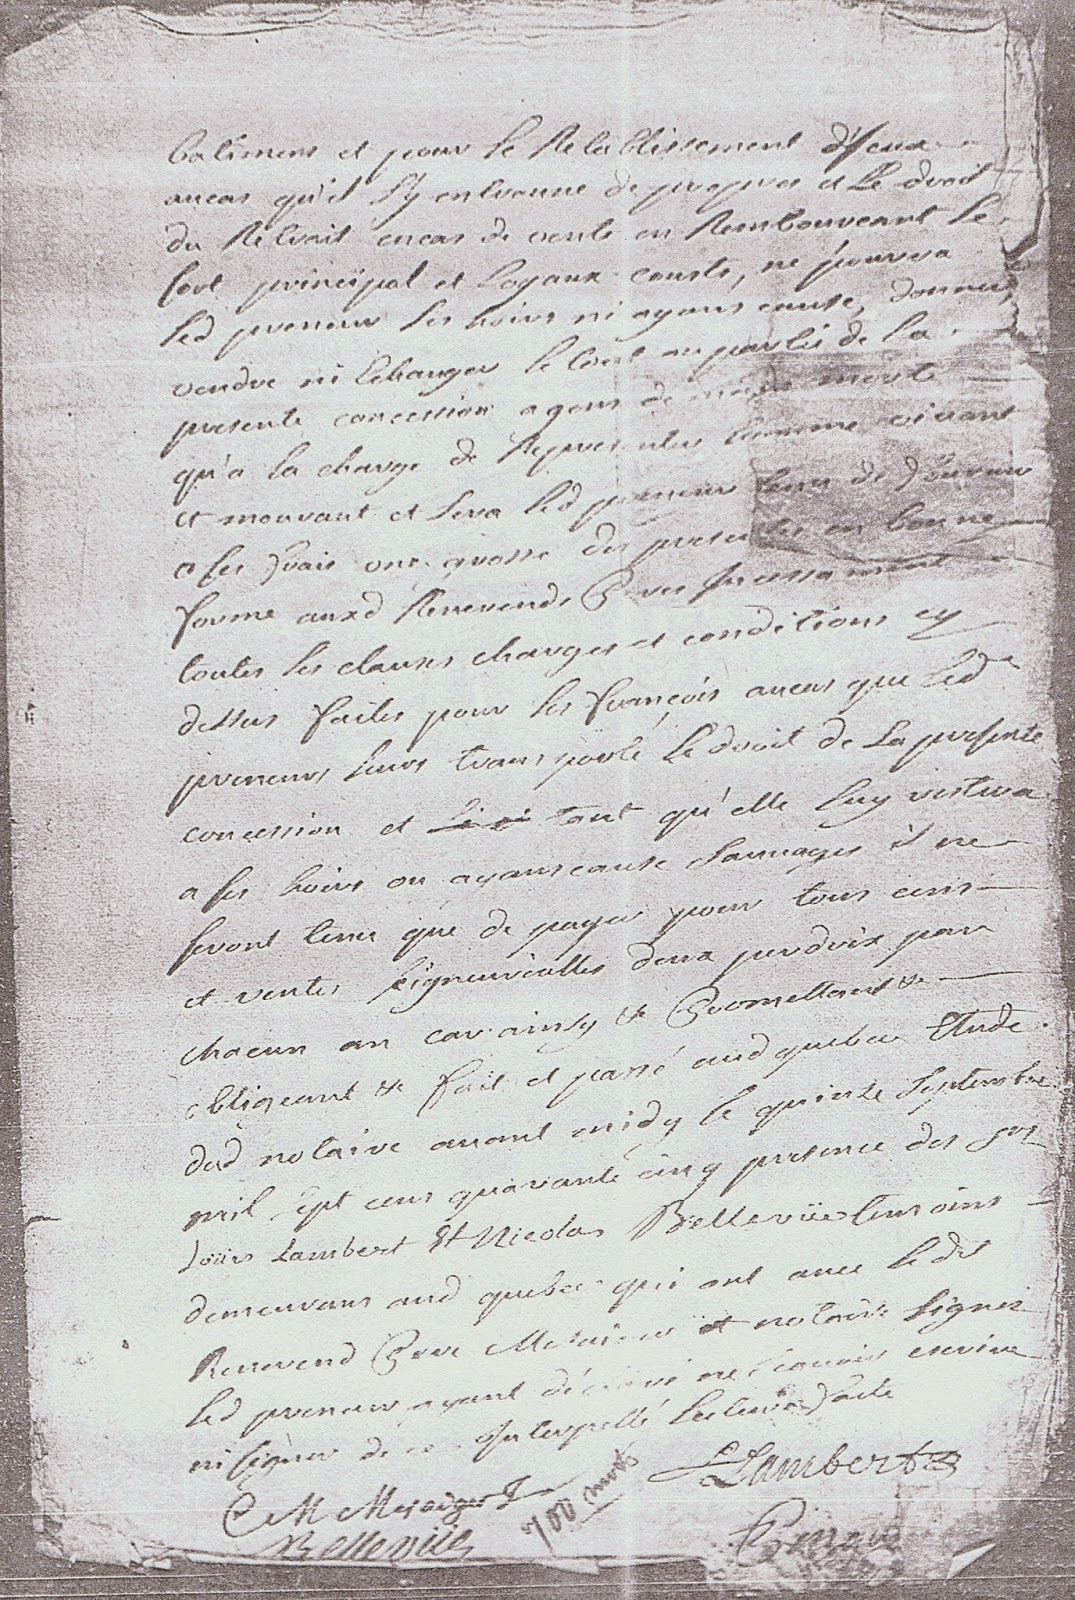 batimens et pour le Retablissement d'Jceux
aucas qu'il s'y entrouve de propres et Le droit
du Retrait encas de vente en Rembourceant le
sort principal et Loyaux cousts, ne pourra
led preneur ses hoirs ni ayans cause, donner
vendre ni Echanger le tout ou partie de la
presente concession a gens de main morte
qu'a la charge de Representer homme vivant
et mourant et sera led preneur tenu de fournir
a ses frais une grosse des presentes en bonne
forme auxd Reverends Peres Jncessament
toutes les clauses charges et conditions cy
dessus faites pour les françois aucas que led
preneurs leurs transporte le droit de La presente
concession et tant qu'elle luy restera
a ses hoirs ou ayans cause sauvages il ne
seront tenu que de payer pour tous cens
et rentes seigneurialles deux perdrix par
chacun an car ainsy &c Promettant &c
obligeant &c fait et passé aud quebec Etude
dud notaire avant midy le quinze septembre
mil sept cens quarante cinq presence des srs
Loüis Lambert Et Nicolas Bellevüe temoins
demeurans aud quebec qui ont avec led
Reverend Pere Mesaiger et notaire signez
led preneur ayant déclaré ne sçavoir escrire
ni signer de ce Interpellé lecture faite
C M Mesaiger J
700 mots
L Lambert
Belleville
Pinguet